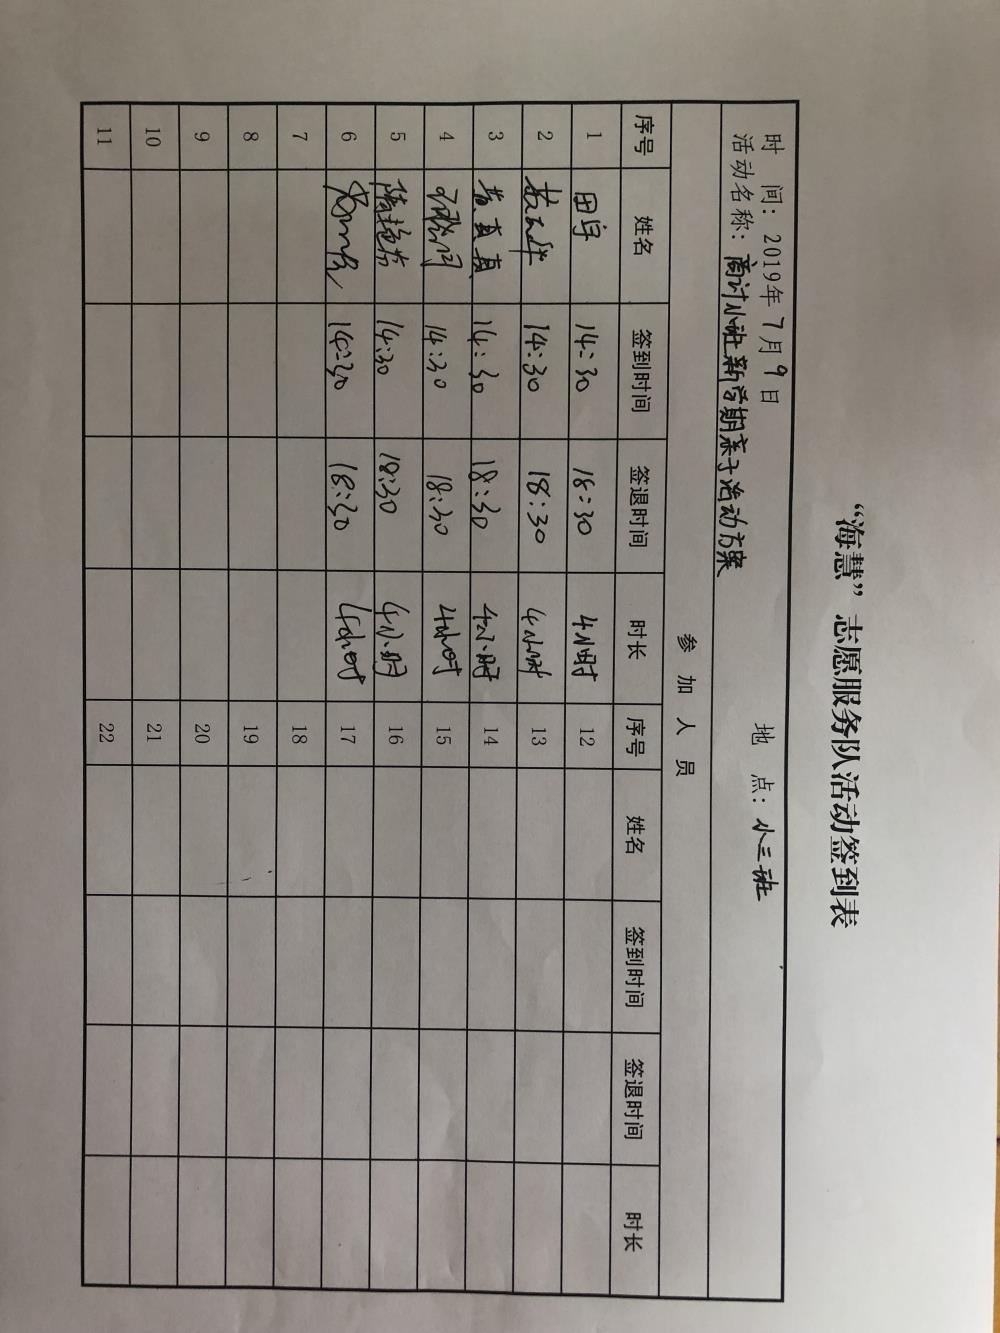 “海慧”志愿服务队活动签到表
时 间：2019年7月9日 地 点：小三班
活动名称：商讨小班新学期亲子活动方案
参 加 人 员
序号 姓名 签到时间 签退时间 时长 序号 姓名 签到时间 签退时间 时长
1 田宇 14:30 18:30 4小时 12
2 14:30 18:30 4小时 13
3 14:30 18:30 4小时 14
4 14:30 18:30 4小时 15
5 14:30 18:30 4小时 16
6 14:30 18:30 4小时 17
7 18
8 19
9 20
10 21
11 22